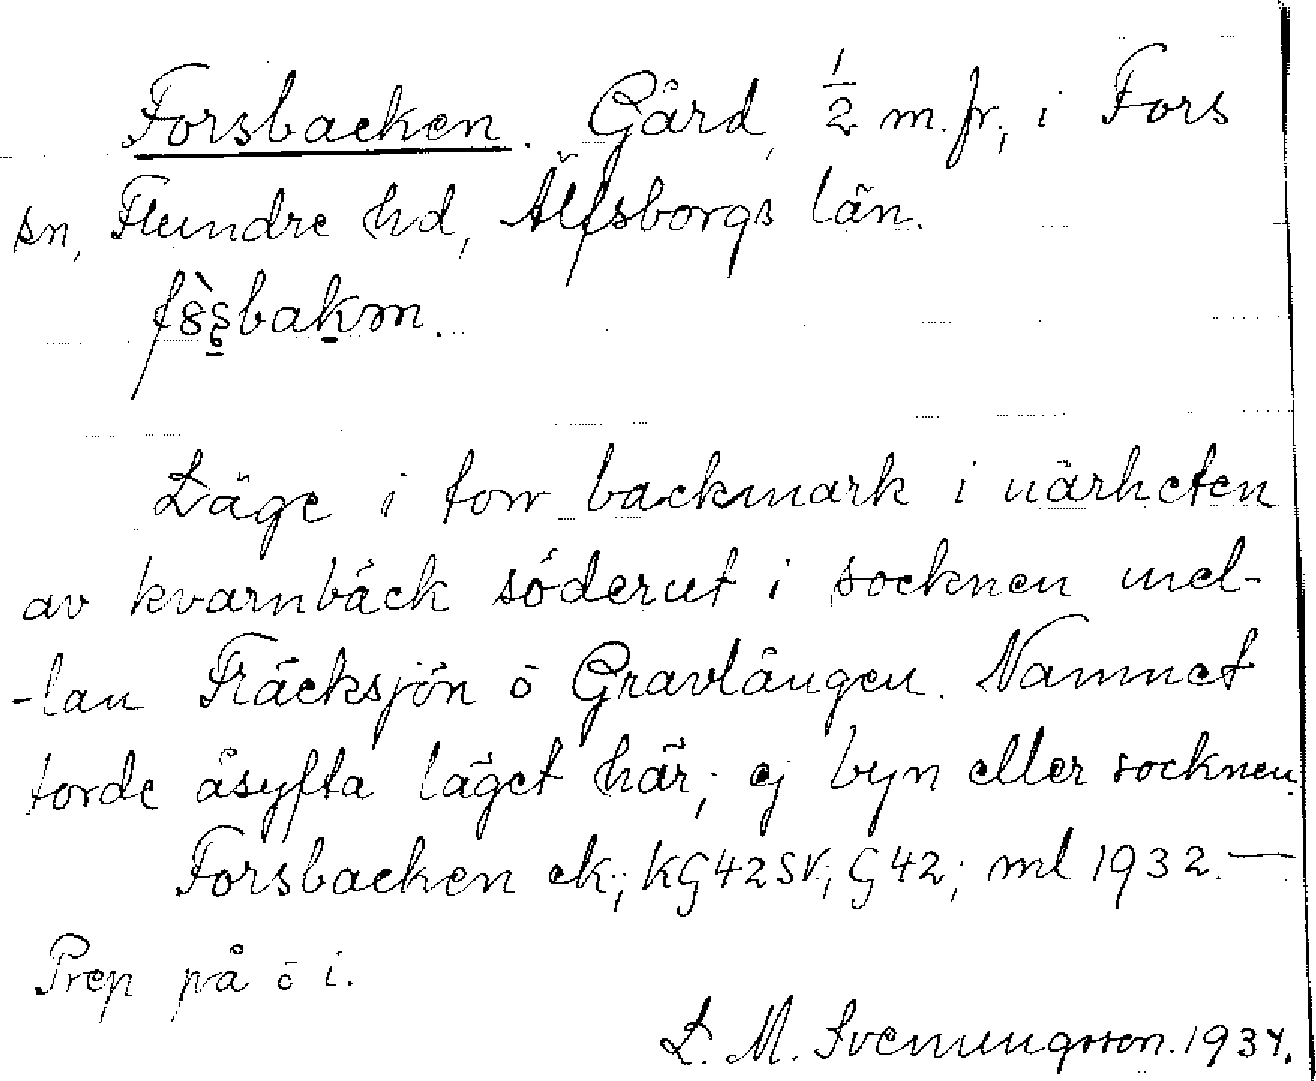 Forsbacken. Gård, ½ m. fr., i Fors
sn, Flundre hd, Älfsborgs län.
Läge i torr backmark i närheten
av kvarnbäck söderut i socknen mel-
-lan Träcksjön o Gravlången. Namnet
torde åsyfta läget här, ej byn eller socknen
Forsbacken ek; KG42SV; G42; ml 1932. —
Prep på o i.
L. M. Svenungsson. 1934.